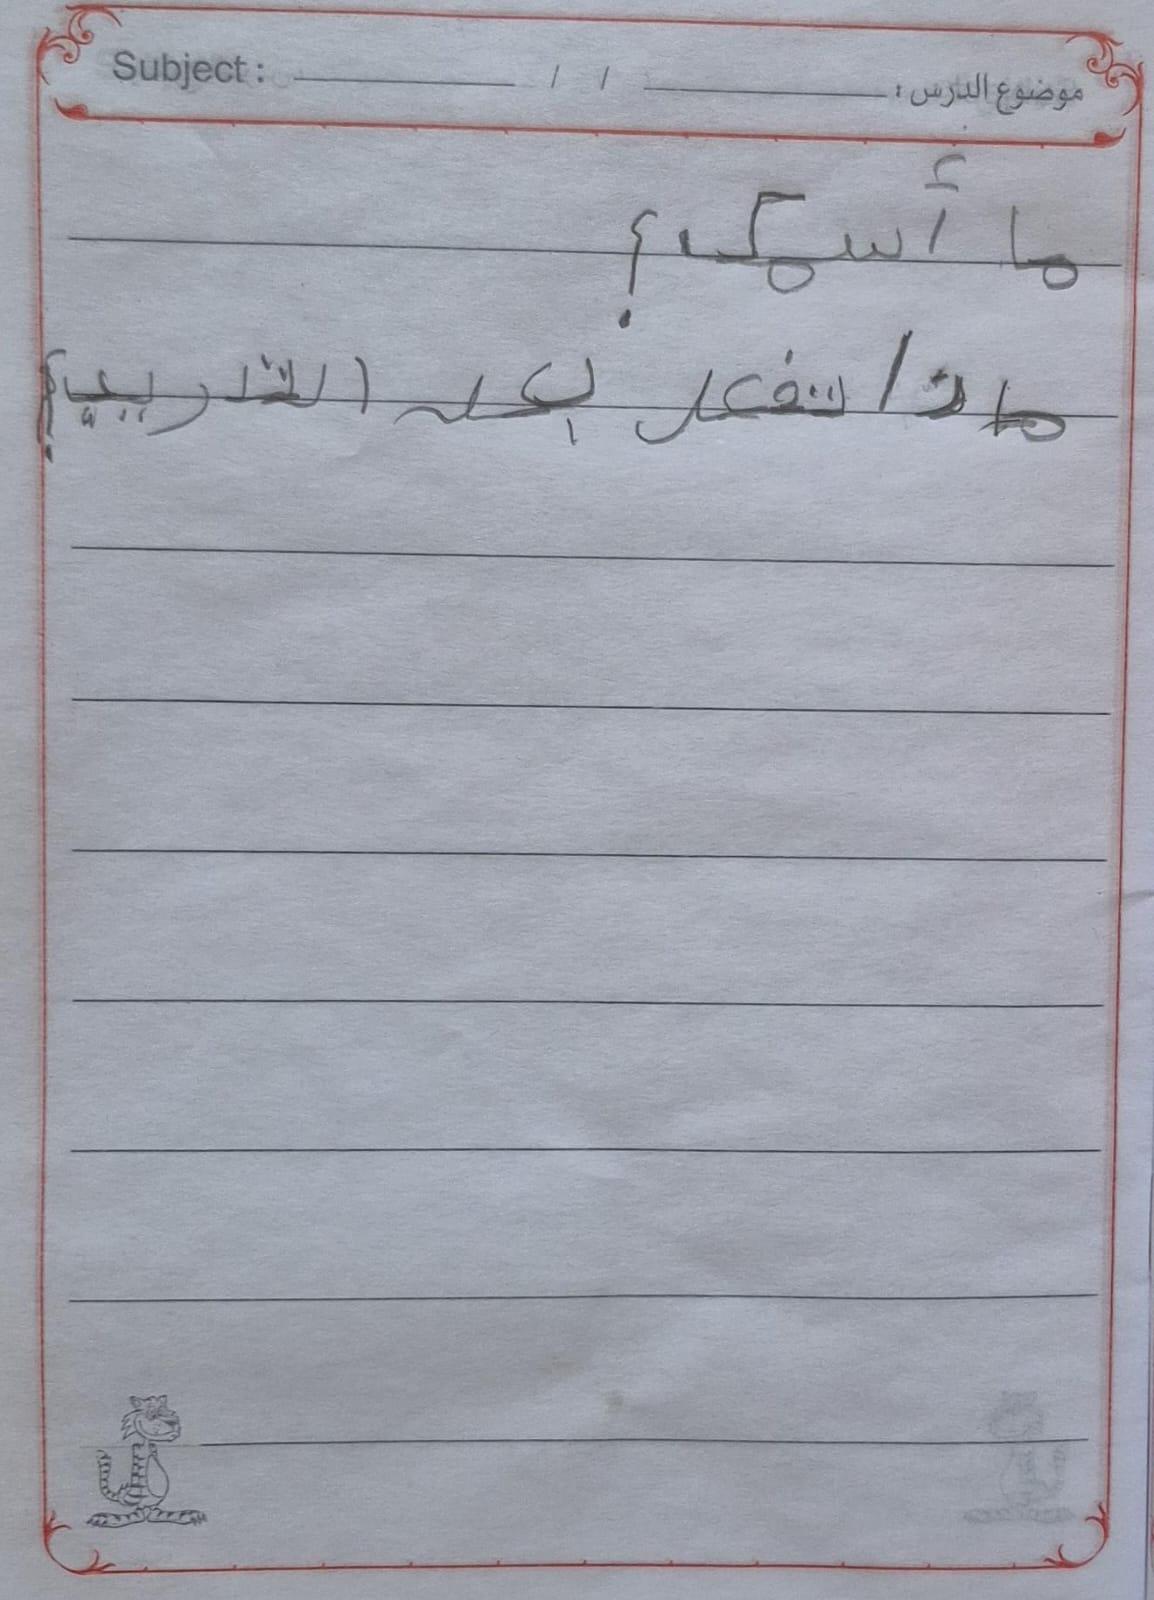 Subject : / / موضوع الدرس :
ما أسمك؟
ماذا تفعل بعد التدريب؟